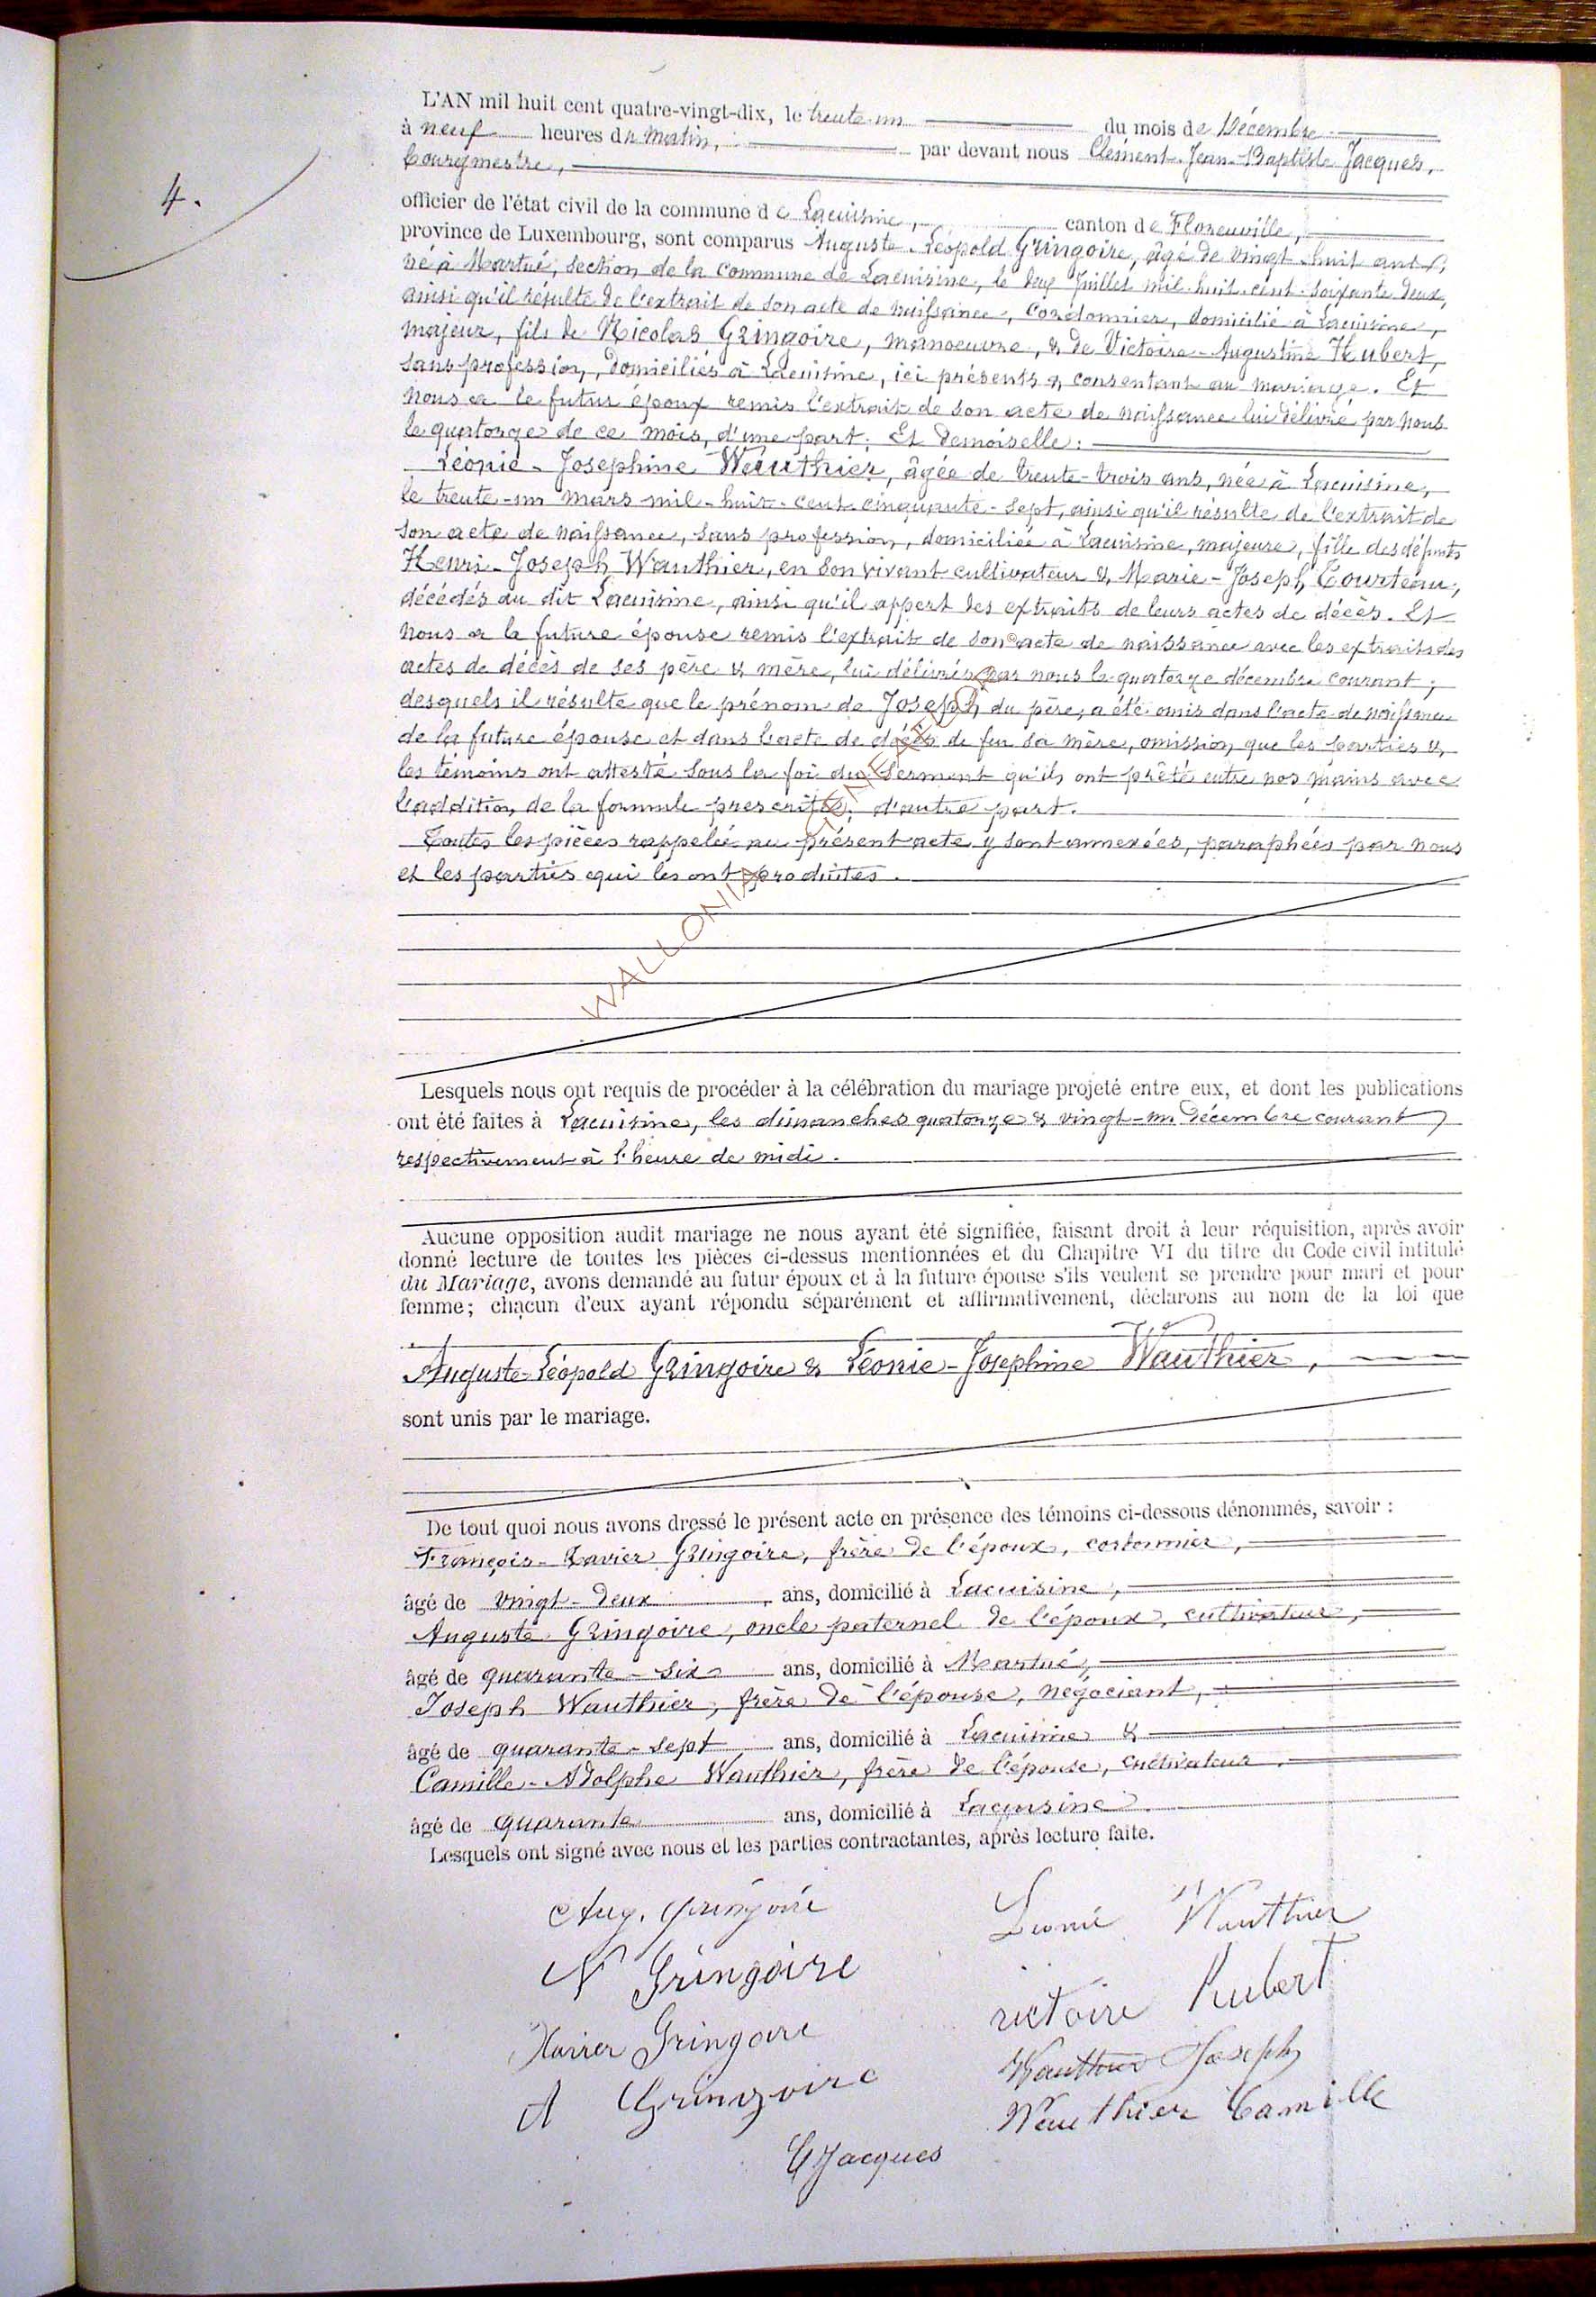 L'AN mil huit cent quatre-vingt-dix, le trente-un du mois de Décembre
à neuf heures du matin, par devant nous Clément-Jean-Baptiste Jacques,
bourgmestre,
4.
officier de l'état civil de la commune de Lacuisine, canton de Florenville,
province de Luxembourg, sont comparus Auguste-Léopold Gringoire, âgé de vingt-huit ans,
né à Martué, section de la commune de Lacuisine, le deux Juillet mil-huit-cent-soixante-deux,
ainsi qu'il résulte de l'extrait de son acte de naissance, cordonnier, domicilié à Lacuisine,
majeur, fils de Nicolas Gringoire, manoeuvre, & de Victoire-Augustine Hubert,
sans profession, domiciliés à Lacuisine, ici présents & consentant au mariage. Et
nous a le futur époux remis l'extrait de son acte de naissance lui délivré par nous
le quatorze de ce mois, d'une part. Et demoiselle:
Léonie-Josephine Wauthier, âgée de trente-trois ans, née à Lacuisine,
le trente-un mars mil-huit-cent-cinquante-sept, ainsi qu'il résulte de l'extrait de
son acte de naissance, sans profession, domiciliée à Lacuisine, majeure, fille des défunts
Henri-Joseph Wauthier, en son vivant cultivateur & Marie-Joseph Tourteau,
décédés au dit Lacuisine, ainsi qu'il appert des extraits de leurs actes de décès. Et
nous a la future épouse remis l'extrait de son acte de naissance avec les extraits des
actes de décès de ses père & mère, lui délivrés par nous le quatorze décembre courant;
desquels il résulte que le prénom de Joseph, du père, a été omis dans l'acte de naissance
de la future épouse et dans l'acte de décès de feu sa mère, omission que les parties &
les témoins ont attesté sous la foi du serment qu'ils ont prêté entre nos mains avec
l'addition de la formule prescrite, d'autre part.
Toutes les pièces rappelées au présent acte y sont annexées, paraphées par nous
et les parties qui les ont produites.
WALLONIA GENEALOGY
Lesquels nous ont requis de procéder à la célébration du mariage projeté entre eux, et dont les publications
ont été faites à Lacuisine, les dimanches quatorze & vingt-un décembre courant,
respectivement à l'heure de midi.
Aucune opposition audit mariage ne nous ayant été signifiée, faisant droit à leur réquisition, après avoir
donné lecture de toutes les pièces ci-dessus mentionnées et du Chapitre VI du titre du Code civil intitulé
du Mariage, avons demandé au futur époux et à la future épouse s'ils veulent se prendre pour mari et pour
femme; chacun d'eux ayant répondu séparément et affirmativement, déclarons au nom de la loi que
Auguste-Léopold Gringoire & Léonie-Josephine Wauthier,
sont unis par le mariage.
De tout quoi nous avons dressé le présent acte en présence des témoins ci-dessous dénommés, savoir :
François-Xavier Gringoire, frère de l'époux, cordonnier,
âgé de vingt-deux ans, domicilié à Lacuisine,
Auguste Gringoire, oncle paternel de l'époux, cultivateur,
âgé de quarante-six ans, domicilié à Martué,
Joseph Wauthier, frère de l'épouse, négociant,
âgé de quarante-sept ans, domicilié à Lacuisine &
Camille-Adolphe Wauthier, frère de l'épouse, cultivateur,
âgé de quarante ans, domicilié à Lacuisine.
Lesquels ont signé avec nous et les parties contractantes, après lecture faite.
Aug. Gringoire Léonie Wauthier
N Gringoire victoire hubert
Xavier Gringoire Wauthier Joseph
A Gringoire Wauthier Camille
CJacques